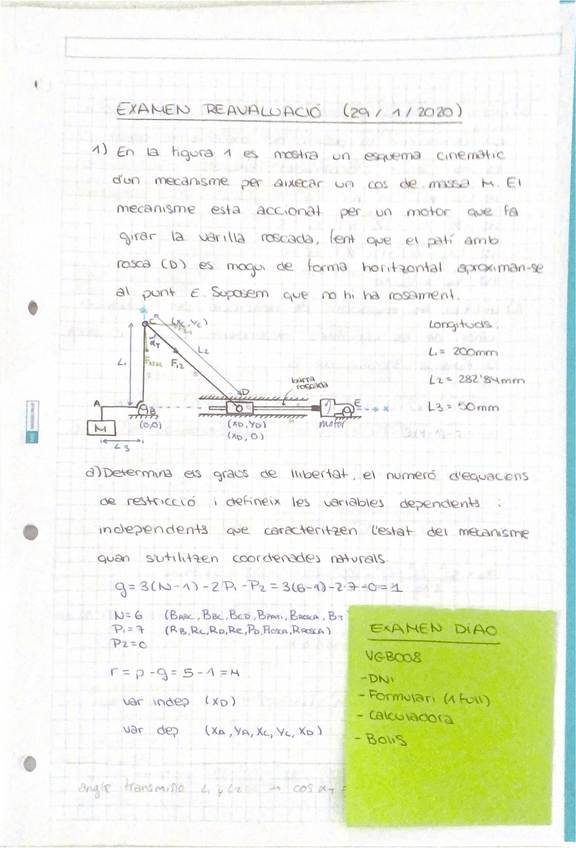 EXAMEN REAVALUACIÓ (29/1/2020)
1) En la figura 1 es mostra un esquema cinemàtic
d'un mecanisme per aixecar un cos de massa M. El
mecanisme esta accionat per un motor que fa
girar la varilla roscada, fent que el patí amb
rosca (D) es mogui de forma horitzontal aproximan-se
al punt E. Suposem que no hi ha rosament.
C (Xc, Yc)
αT
L2
L1
F12
D
barra
roscada
A
B
E
x
M
(0,0)
(XD, YD)
(XD, 0)
motor
L3
Longituds.
L1 = 200mm
L2 = 282'84mm
L3 = 50mm
a) Determina els graus de llibertat, el numeró d'equacions
de restricció i defineix les variables dependents i
independents que caracteritzen l'estat del mecanisme
quan s'utilitzen coordenades naturals.
g = 3(N-1) - 2·P1 - P2 = 3(6-1) - 2·7 - 0 = 1
N=6 (BABC, BBC, BCD, BPATI, BROSCA, BT
P1=7 (RB, RC, RD, RE, PD, PROSCA, RROSCA)
P2=0
r = p - g = 5 - 1 = 4
var indep (XD)
var dep (XA, YA, XC, YC, XD)
angle transmisio L1 y L2 → cos αT =
EXAMEN DIAO
VG-B008
- DNI
- Formulari (1 full)
- Calculadora
- Bolis